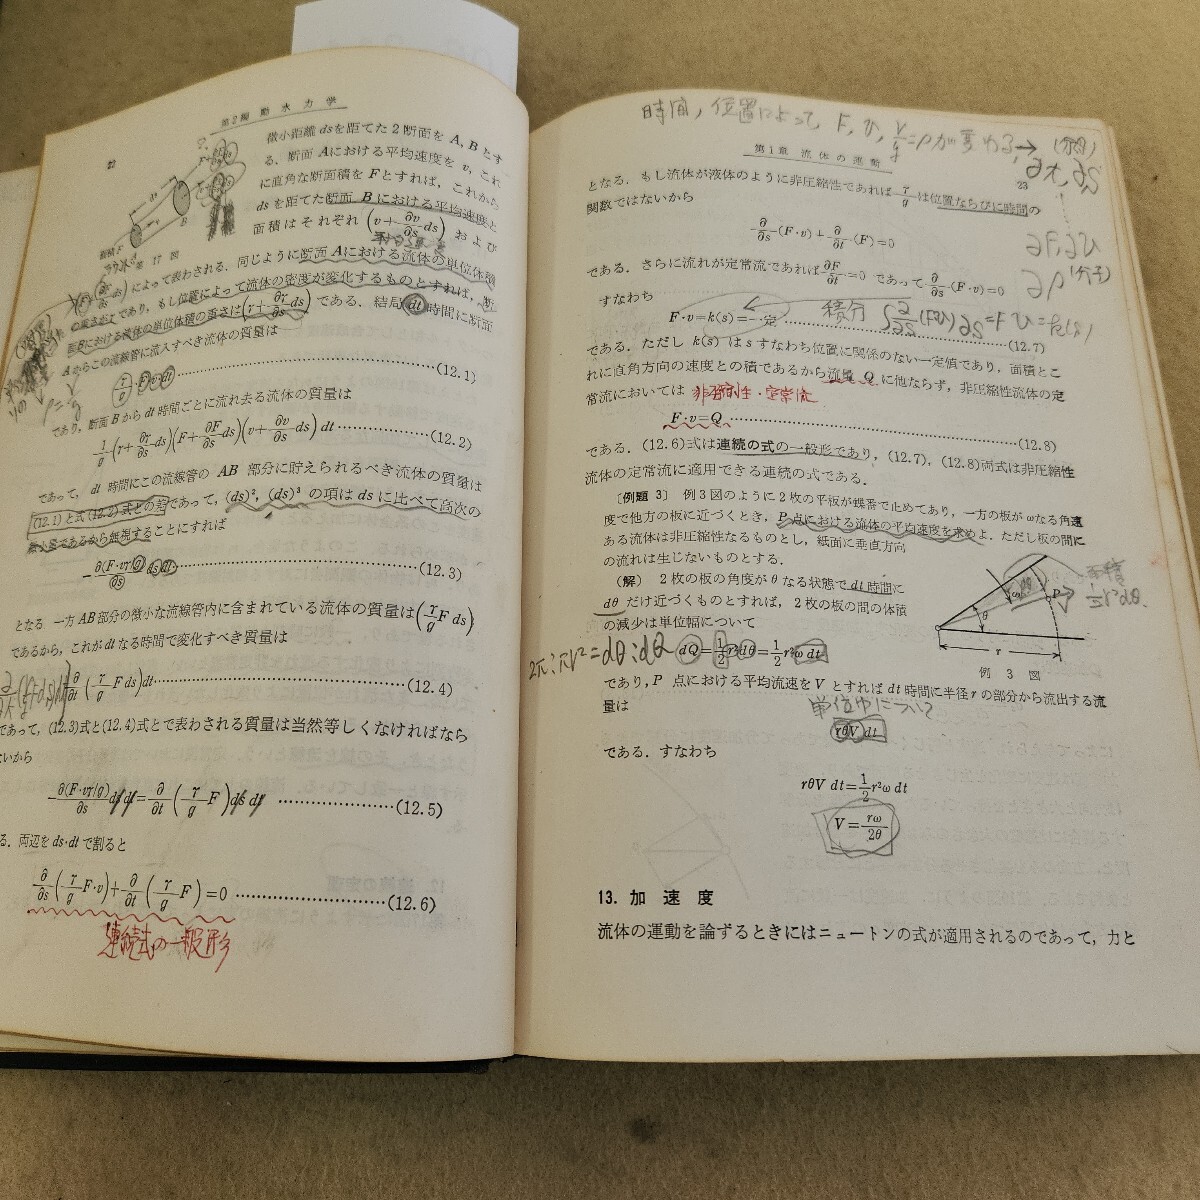 22
第2編 動水力学
微小距離 dsを距てた2断面を A, B とす
る、断面 Aにおける平均速度を v, これ
に直角な断面積を Fとすれば，これから
dsを距てた断面 Bにおける平均速度と
面積はそれぞれ (v+∂v/∂s ds) および
第 17 図
によって表わされる．同じように断面 Aにおける流体の単位体積
の重さがγであり，もし位置によって流体の密度が変化するものとすれば，断
面Bにおける流体の単位体積の重さは(γ+∂γ/∂s ds)である．結局 dt 時間に断面
Aからこの流線管に流入すべき流体の質量は
γ/g・F・v・dt ………(12.1)
であり，断面Bから dt 時間ごとに流れ去る流体の質量は
1/g (γ+∂γ/∂s ds)(F+∂F/∂s ds)(v+∂v/∂s ds) dt ………(12.2)
であって，dt 時間にこの流線管の AB 部分に貯えられるべき流体の質量は
(12.1)と式(12.2)式との差であって，(ds)², (ds)³ の項は dsに比べて高次の
無小量であるから無視することにすれば
-∂(F・vγ/g)/∂s ds dt ………(12.3)
となる 一方 AB部分の微小な流線管内に含まれている流体の質量は(γ/g F ds)
であるから，これが dtなる時間で変化すべき質量は
∂/∂t (γ/g F ds)dt ………(12.4)
であって，(12.3)式と(12.4)式とで表わされる質量は当然等しくなければなら
ないから
-∂(F・vγ/g)/∂s ds dt=∂/∂t (γ/g F) ds dt ………(12.5)
る．両辺を ds・dt で割ると
∂/∂s (γ/g F・v)+∂/∂t (γ/g F)=0 ………(12.6)
連続式の一般形
時間，位置によって，F, v, γ/g=ρが変わる→(分母)
∂t, ∂s
∂F, ∂v
∂ρ (分子)
第1章 流体の運動
23
となる．もし流体が液体のように非圧縮性であれば γ/g は位置ならびに時間の
関数ではないから
∂/∂s (F・v)+∂/∂t (F)=0
である．さらに流れが定常流であれば ∂F/∂t=0 であって ∂/∂s (F・v)=0
すなわち
積分 ∫∂/∂s (Fv) ∂s=Fv=k(s)
F・v=k(s)=一定 ………(12.7)
である．ただし k(s) は s すなわち位置に関係のない一定値であり，面積とこ
れに直角方向の速度との積であるから流量 Q に他ならず，非圧縮性流体の定
常流においては
非圧縮性・定常流
F・v=Q ………(12.8)
である．(12.6)式は連続の式の一般形であり，(12.7), (12.8)両式は非圧縮性
流体の定常流に適用できる連続の式である．
〔例題 3〕 例3図のように2枚の平板が蝶番で止めてあり，一方の板がωなる角速
度で他方の板に近づくとき，P 点における流体の平均速度を求めよ．ただし板の間に
ある流体は非圧縮性なるものとし，紙面に垂直方向
の流れは生じないものとする．
（解） 2枚の板の角度がθなる状態で dt 時間に
dθ だけ近づくものとすれば，2枚の板の間の体積
の減少は単位幅について
2π:πr²=dθ:dQ
dQ=1/2 r²dθ=1/2 r²ω dt
面積
½r²dθ.
dθ
ω
P
θ
r
例 3 図
であり，P 点における平均流速を V とすれば dt 時間に半径 r の部分から流出する流
量は
単位巾について
rθV dt
である．すなわち
rθV dt=1/2 r²ω dt
V=rω/2θ
13. 加 速 度
流体の運動を論ずるときにはニュートンの式が適用されるのであって，力と